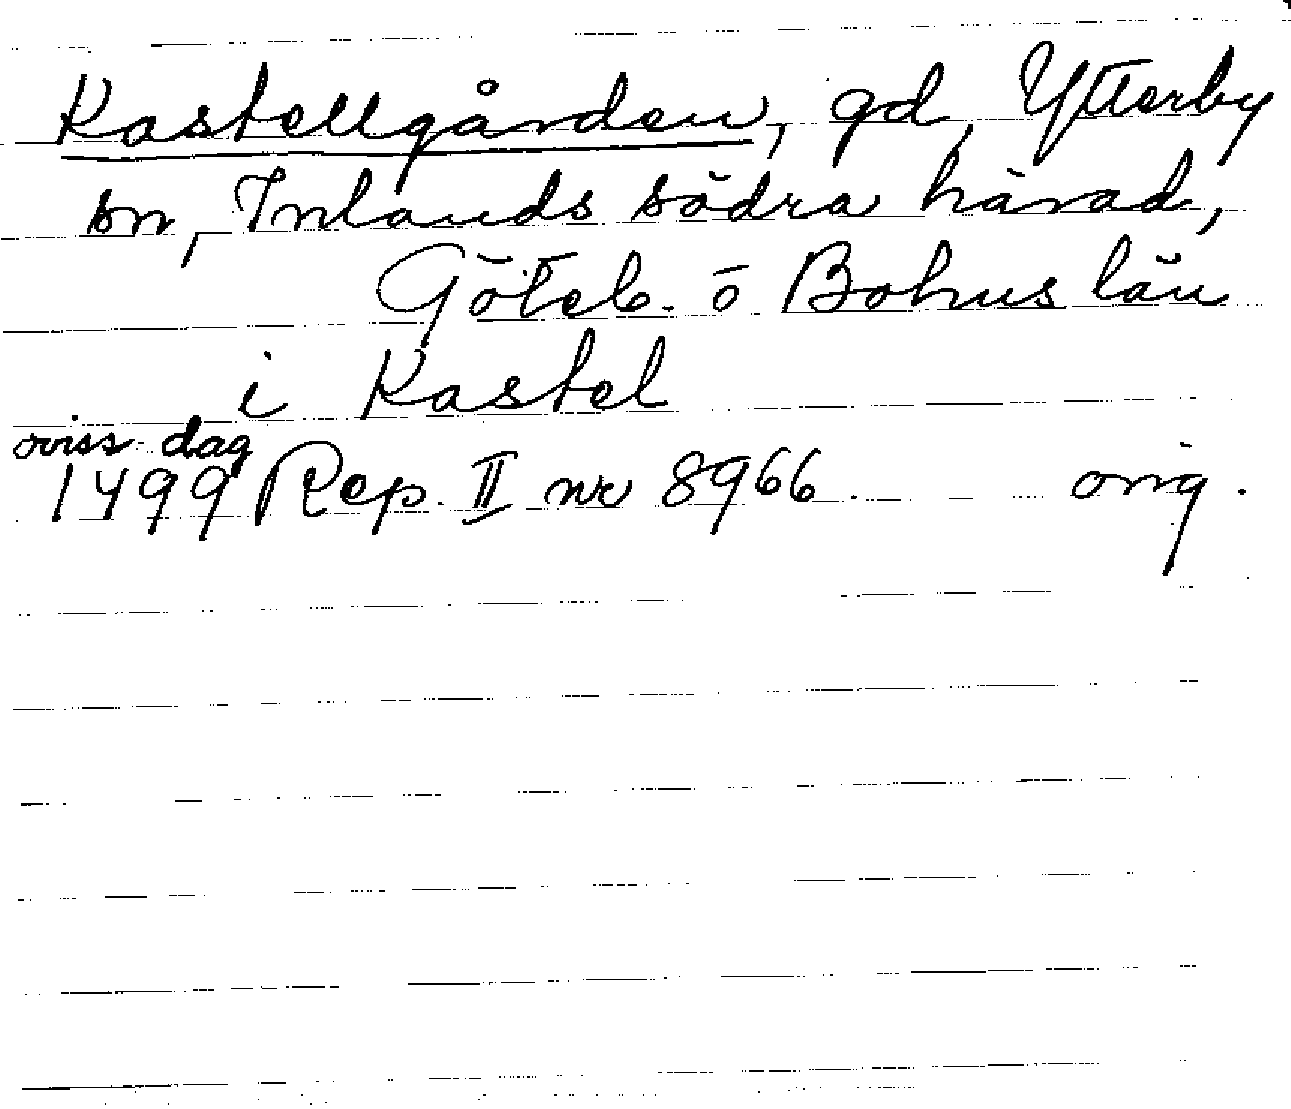 Kastellgården, gd, Ytterby
sn, Inlands södra härad,
Göteb. o Bohus län
i Kastel
oviss dag
1499 Rep. II nr 8966. orig.